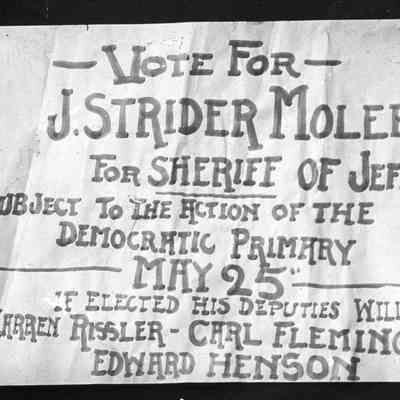 — VOTE FOR —
J. STRIDER MOLE
FOR SHERIFF OF JEF
UBJECT TO THE ACTION OF THE
DEMOCRATIC PRIMARY
MAY 25"
IF ELECTED HIS DEPUTIES WILL
ARREN RISSLER - CARL FLEMING
EDWARD HENSON